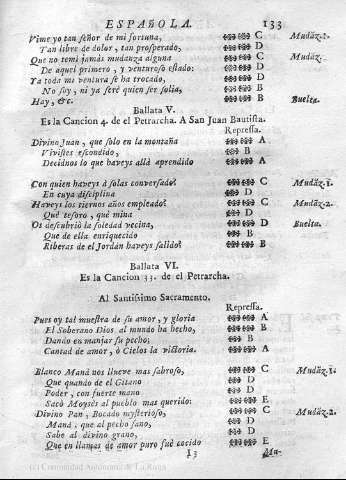 ESPAÑOLA. 133
Vime yo tan señor de mi fortuna, C Mudāz.2.
Tan libre de dolor, tan prosperado, D
Que no temi jamás mudanza alguna C Mudāz.
De aquel primero, y venturoso estado: D
Ya toda mi ventura se ha trocado, D
No soy, ni ya seré quien ser solia, B
Hay, &c. B Buelta.
Ballata V.
Es la Cancion 4. de el Petrarcha. A San Juan Bautista.
Repressa.
Divino Juan, que solo en la montaña A
Vivistes escondido, B
Decidnos lo que haveys allà aprendido A
Con quien haveys à solas conversado? C Mudāz.1.
En cuya disciplina D
Haveys los tiernos años empleado? C Mudāz.2.
Què tesoro, què mina D
Os descubriò la soledad vecina, D Buelta.
Que de ella enriquecido B
Riberas de el Jordán haveys salido? B
Ballata VI.
Es la Cancion 33. de el Petrarcha.
Al Santissimo Sacramento.
Repressa.
Pues oy tal muestra de su amor, y gloria A
El Soberano Dios al mundo ha hecho, B
Dando en manjar su pecho; B
Cantad de amor, ò Cielos la victoria. A
Blanco Manà nos llueve mas sabroso, C Mudāz.1.
Que quando de el Gitano D
Poder, con fuerte mano D
Sacò Moysès al pueblo mas querido: E
Divino Pan, Bocado mysterioso, C Mudāz.2.
Manà, que al pecho sano, D
Sabe al divino grano, D
Que en llamas de amor puro fuè cocido E
I3 Mu-
(c) Comunidad Autónoma de La Rioja